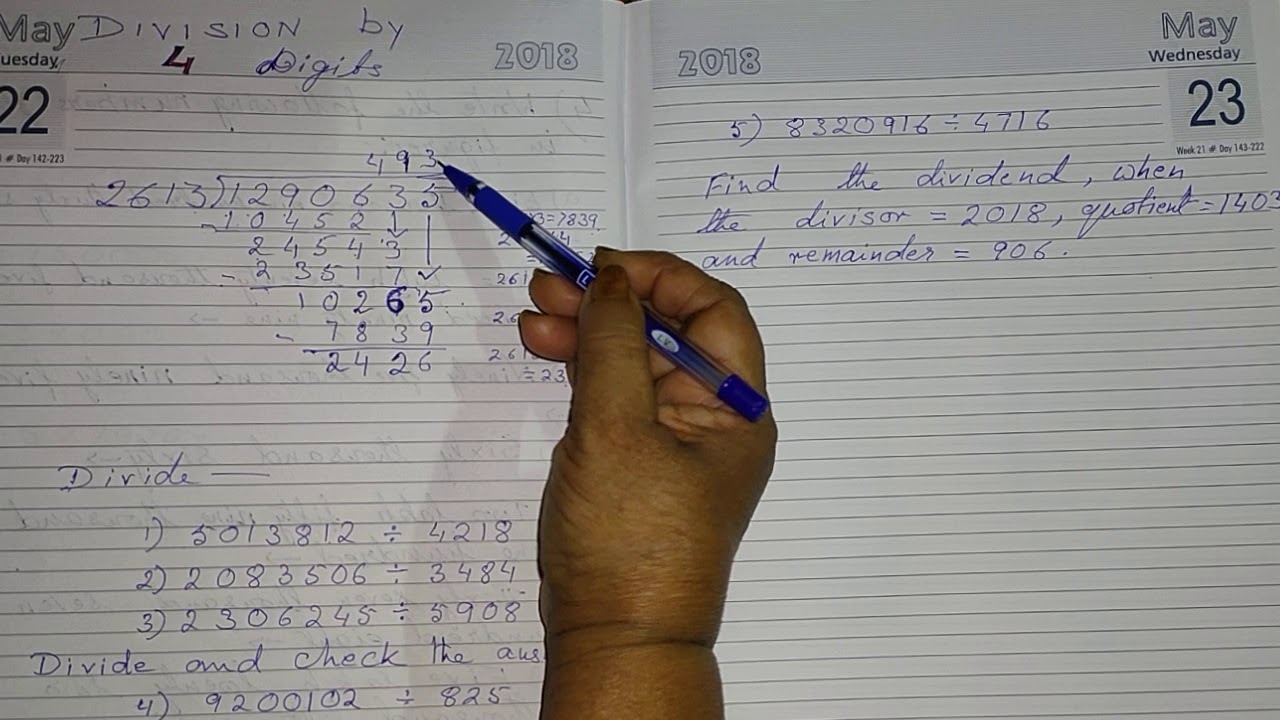 May DIVISION by
4 Digits
2018
22
# Day 142-223
493
2613)1290635
-10452
24543
-23517
10265
-7839
2426
Divide —
1) 5013812 ÷ 4218
2) 2083506 ÷ 3484
3) 2306245 ÷ 5908
Divide and check the ans
4) 9200102 ÷ 825
2018
May
Wednesday
23
Week 21 # Day 143-222
5) 8320916 ÷ 4716
Find the dividend, when
the divisor = 2018, quotient = 1403
and remainder = 906.